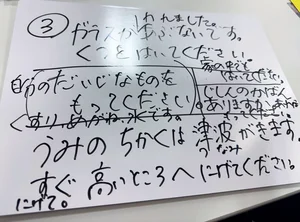 ③
われました。
ガラスがあぶないです。
くつをはいてください
家の中でも
はいてください
自分のだいじなものを
もってください
じしんのかばん
ありますか
くすり、めがね、水です。
うみのちかくは津波がきます。
つなみ
すぐ高いところへにげてください。
にげて。